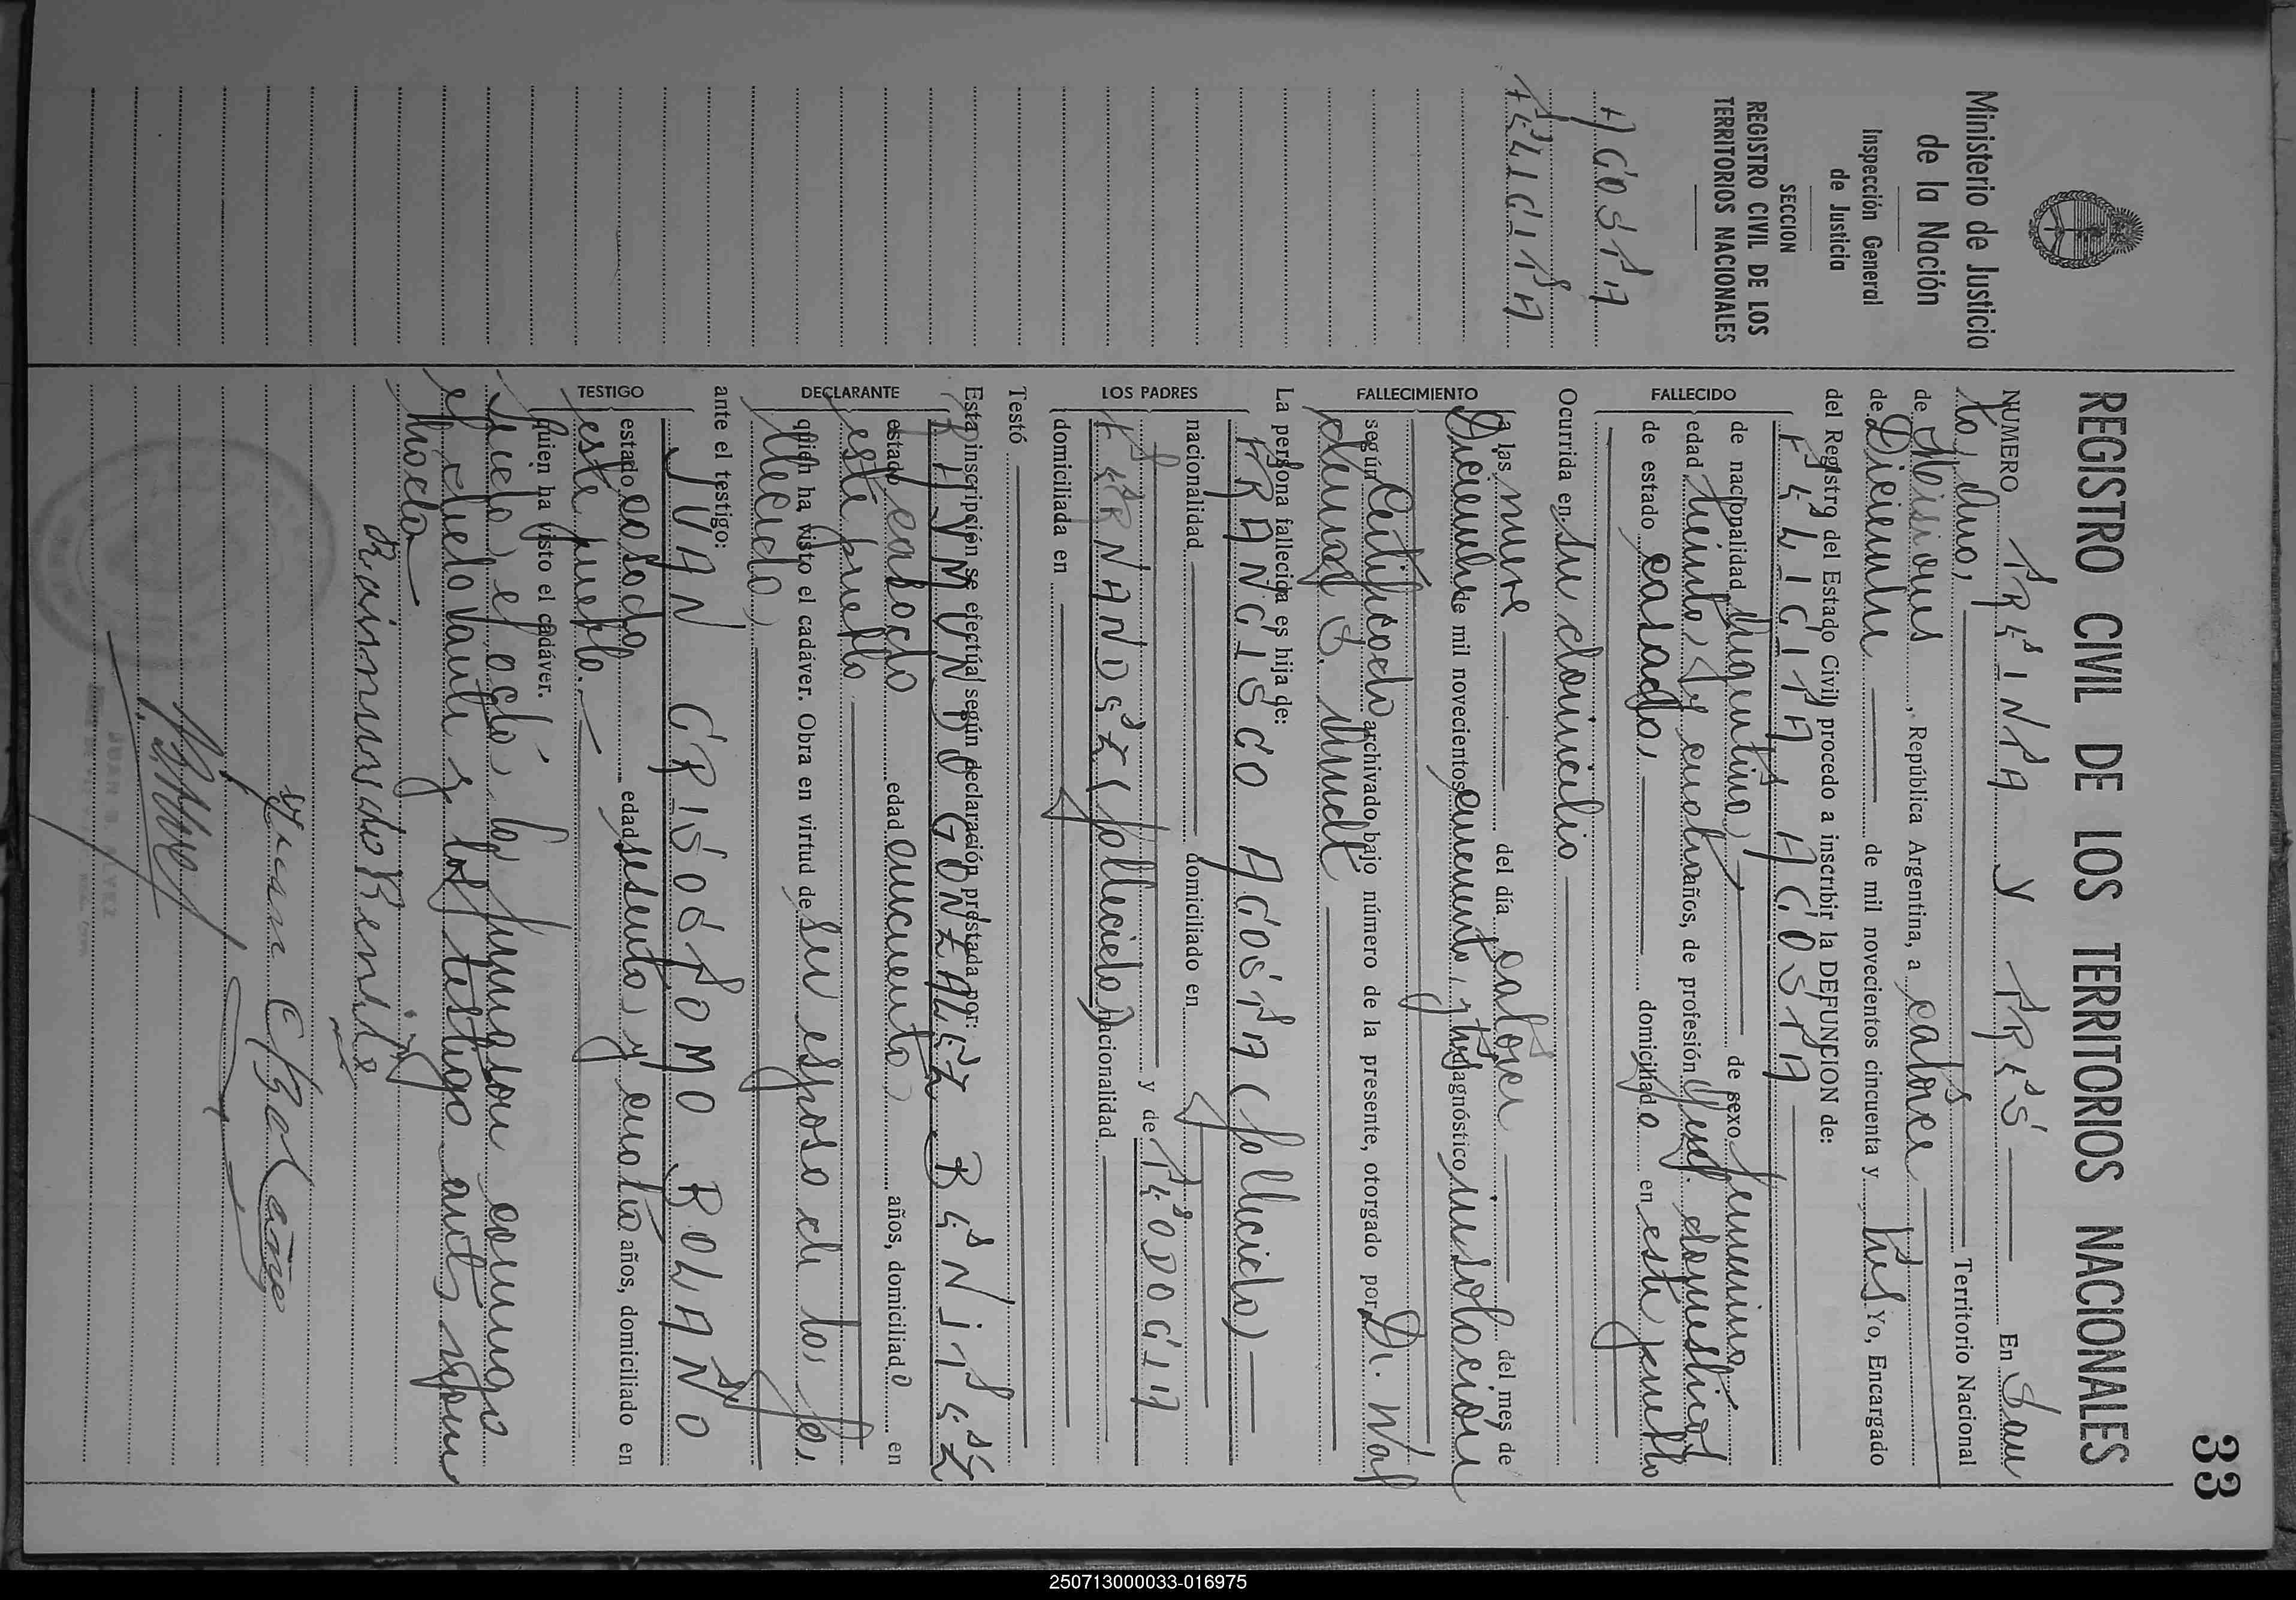 33
Ministerio de Justicia
de la Nación
Inspección General
de Justicia
SECCION
REGISTRO CIVIL DE LOS
TERRITORIOS NACIONALES
ACOSTA
FELICITA
REGISTRO CIVIL DE LOS TERRITORIOS NACIONALES
NUMERO TREINTA Y TRES En San
to, Ana, Territorio Nacional
de Misiones, República Argentina, a catorce
de Diciembre de mil novecientos cincuenta y tres Yo, Encargado
del Registro del Estado Civil, procedo a inscribir la DEFUNCION de:
FALLECIDO
FELICITA ACOSTA
de nacionalidad Argentina, de sexo femenino,
edad treinta, y cuatro años, de profesión domestica
de estado casada, domiciliado en este pueblo
Ocurrida en su domicilio
FALLECIMIENTO
a las nueve del día catorce del mes de
Diciembre de mil novecientos cincuenta, y tres diagnóstico insolacion
según Certificado archivado bajo número de la presente, otorgado por Dr. Wal
demar
La persona fallecida es hija de:
LOS PADRES
FRANCISCO ACOSTA (fallecido)
nacionalidad domiciliado en
y de TEODOCIA
FERNANDEZ (fallecida) nacionalidad
domiciliada en
Testó
Esta inscripción se efectúa según declaración prestada por:
DECLARANTE
RAYMUNDO GONZALEZ BENITEZ
estado casado edad cincuenta, años, domiciliado en
este pueblo
quien ha visto el cadáver. Obra en virtud de su esposo de la, fa,
llecida,
ante el testigo:
TESTIGO
JUAN CRISOSTOMO BOLAÑO
estado casado edad sesenta, y cuatro años, domiciliado en
este pueblo.
quien ha visto el cadáver.
Leida, el acta, la, firmason conmigo
el declarante y los testigo antes
Raimundo Benite
Juan C Bolaño
JUAN B.
250713000033-016975